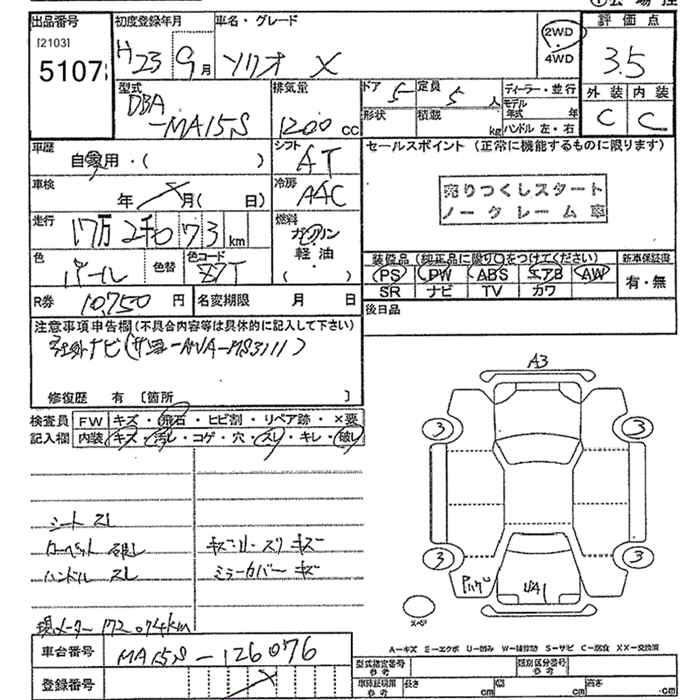 出品番号 初度登録年月 車名・グレード 評価点
[2103] 5107
H23 9月 ソリオ X 2WD 4WD 3.5
型式 排気量 ドア 5 定員 5人 ディーラー・並行 外装 内装
DBA-MA15S 1200cc 形状 積載 kg モデル年式 年 ハンドル 左・右 C C
車歴 自家用・( ) シフト AT セールスポイント (正常に機能するものに限ります)
車検 年 月( 日) 冷房 AAC 売りつくしスタート
ノークレーム車
走行 17万2千073km 燃料 ガソリン
軽油
( )
色 パール 色替 色コード Z7T
装備品(純正品に限り○をつけてください) 新車保証書
PS PW ABS エアB AW 有・無
SR ナビ TV カワ
R券 10,750円 名変期限 月 日 後日品
注意事項申告欄(不具合内容等は具体的に記入して下さい)
社外ナビ(サンヨーNVA-MS3111)
修復歴 有 〔箇所 〕
検査員 FW キズ・飛石・ヒビ割・リペア跡・×要
記入欄 内装 キズ・汚レ・コゲ・穴・スレ・キレ・破レ
A3
3 3
3 3
シート スレ
カーペット 破レ キズ・U・スリキズ
ハンドル スレ ミラーカバー キズ
UA1
現メーター 172,074km
A-キズ E-エクボ U-凹み W-補修跡 S-サビ C-腐食 XX-交換済
車台番号 MA15S-126076
型式指定番号 参考 類別区分番号 参考
登録番号
車体証明用 参考 長さ cm 幅 cm 高さ cm